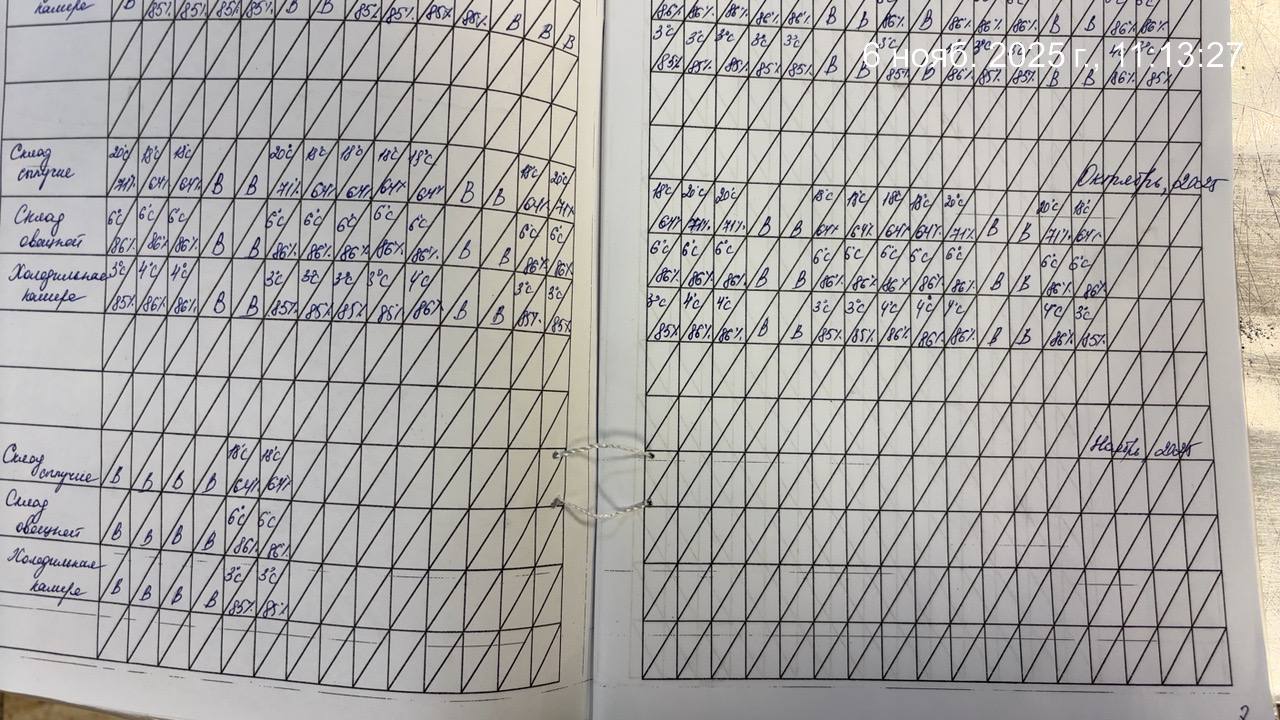 камере В 85% 85% 85% 85% В В 85% 85% 85% 85% В В В
86% 86% 86% 86% 86% В В 86% В 86% 86% 86% В В 86% 86%
3°C 3°C 3°C 3°C 3°C
85% 85% 85% 85% 85% В В 85% В 86% 85% 85% В В 86% 85%
6 нояб. 2025 г., 11:13:27
Октябрь, 2025
Склад 20°C 18°C 18°C 20°C 18°C 18°C 18°C 18°C 18°C 20°C
сыпучие 71% 64% 64% В В 71% 64% 64% 64% 64% В В 64% 71%
Склад 6°C 6°C 6°C 6°C 6°C 6°C 6°C 6°C 6°C 6°C
овощной 86% 86% 86% В В 86% 86% 86% 86% 86% В В 86% 86%
Холодильная 3°C 4°C 4°C 3°C 3°C 3°C 3°C 4°C 3°C 3°C
камере 85% 86% 86% В В 85% 85% 85% 85% 86% В В 85% 85%
18°C 20°C 20°C 18°C 18°C 18°C 18°C 20°C 20°C 18°C
64% 71% 71% В В 64% 64% 64% 64% 71% В В 71% 64%
6°C 6°C 6°C 6°C 6°C 6°C 6°C 6°C 6°C 6°C
86% 86% 86% В В 86% 86% 86% 86% 86% В В 86% 86%
3°C 4°C 4°C 3°C 3°C 4°C 4°C 4°C 4°C 3°C
85% 86% 86% В В 85% 85% 86% 86% 86% В В 86% 85%
Ноябрь, 2025
Склад 18°C 18°C
сыпучие В В В В 64% 64%
Склад 6°C 6°C
овощной В В В В 86% 86%
Холодильная 3°C 3°C
камере В В В В 85% 85%